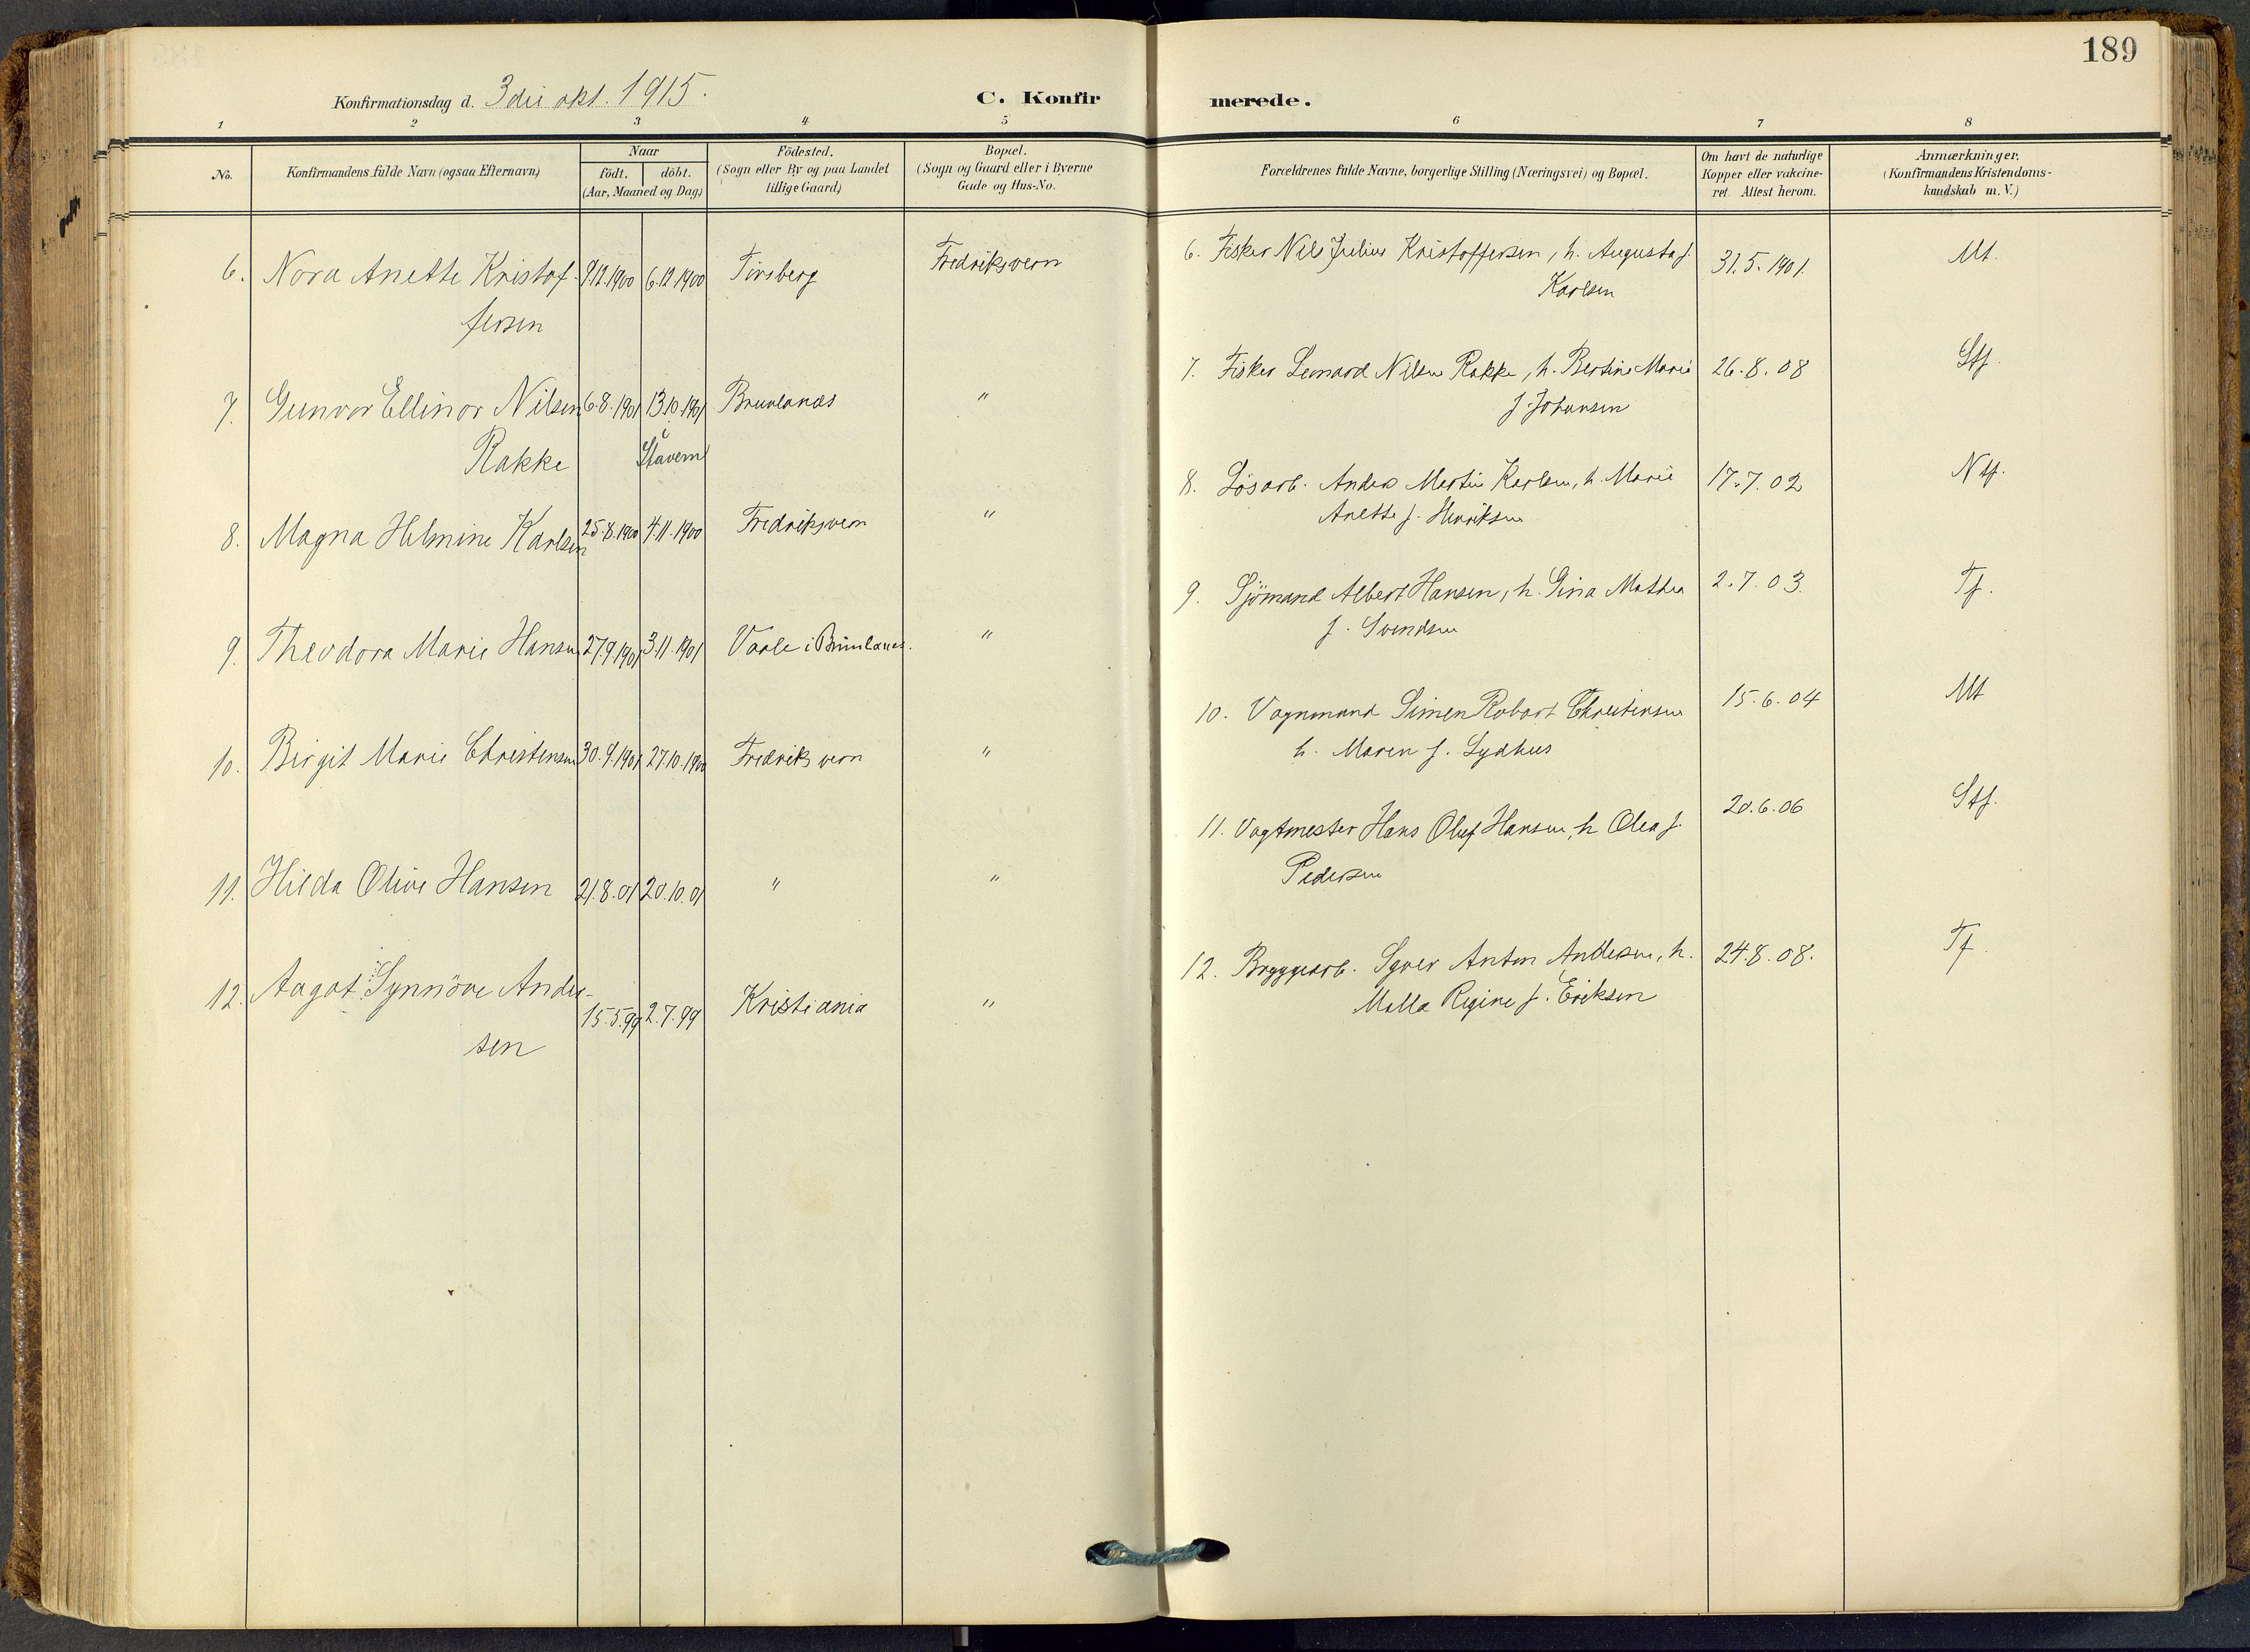 189
Konfirmationsdag d. 3die okt. 1915.
C. Konfirmerede.
1 2 3 4 5 6 7 8
No.
Konfirmandens fulde Navn (ogsaa Efternavn)
Naar
födt. döbt.
(Aar, Maaned og Dag)
Födested.
(Sogn eller By og paa Landet
tillige Gaard)
Bopæl.
(Sogn og Gaard eller i Byerne
Gade og Hus-No.
Forældrenes fulde Navne, borgerlige Stilling (Næringsvei) og Bopæl.
Om havt de naturlige
Kopper eller vakcine-
ret. Attest herom.
Anmærkninger.
(Konfirmandens Kristendoms-
kundskab m. V.)
6. Nora Anette Kristof- 9.12.1900 6.12.1900 Tönsberg Fredriksvern
fersen
6. Fisker Nils Julius Kristoffersen, h. Augusta f. 31.5.1901. Mt.
Karlsen
7. Gunvor Ellinor Nilsen 6.8.1901 13.10.1901 Brunlanes "
Rakke i
Stavern
7. Fisker Leonard Nilsen Rakke, h. Bertine Marie 26.8.08 Stf.
f. Johansen
8. Magna Helmine Karlsen 25.8.1900 4.11.1900 Fredriksvern "
8. Lösarb. Anders Martin Karlsen, h. Marie 17.7.02 Ntf.
Anette f. Henriksen
9. Theodora Marie Hansen 27.9.1901 3.11.1901 Vaale i Brunlanes. "
9. Sjömand Albert Hansen, h. Gina Mathea 2.7.03. Tf.
f. Svendsen
10. Birgit Marie Christensen 30.9.1901 27.10.1900 Fredriksvern "
10. Vognmand Simen Robart Christensen 15.6.04 Mt
h. Maren f. Lydhus
11. Hilda Olive Hansen 21.8.01 20.10.01 " "
11. Vagtmester Hans Oluf Hansen, h Olea f. 20.6.06 Stf.
Pedersen
12. Aagot Synnöve Ander-
15.5.99 2.7.99 Kristiania "
sen
12. Bryggearb. Syver Anton Andersen, h. 24.8.08. Tf.
Malla Regine f. Eriksen